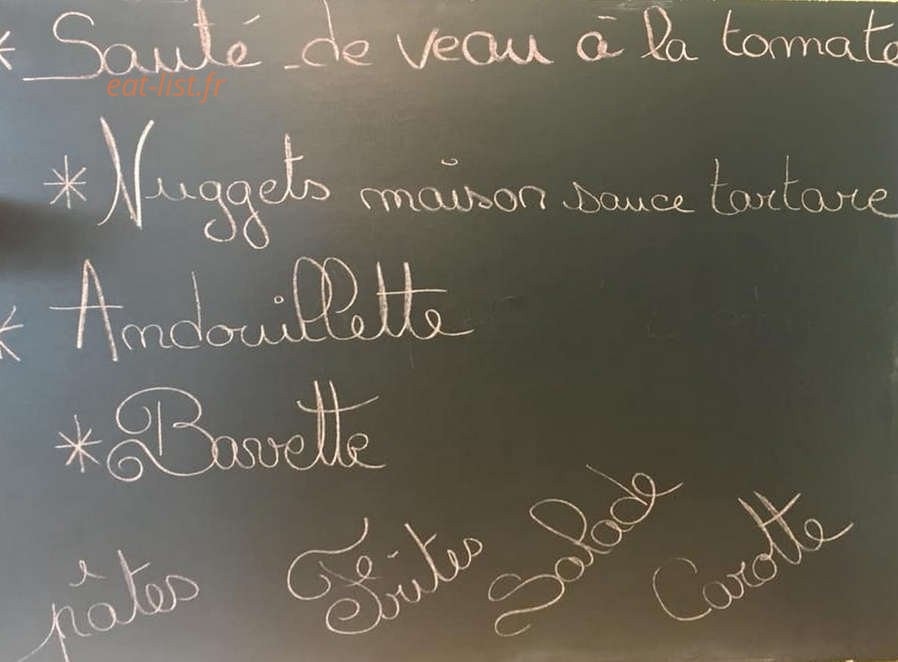 * Sauté de veau à la tomate
eat-list.fr
* Nuggets maison sauce tartare
* Andouillette
* Bavette
pâtes Frites Salade Carotte